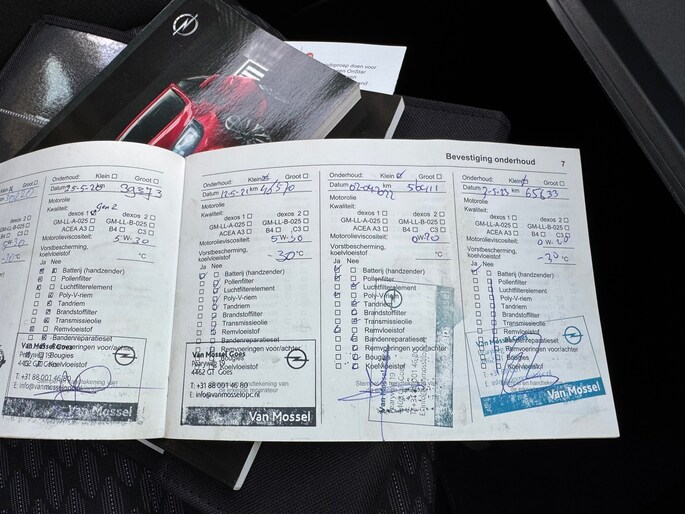 Bevestiging onderhoud 7
Onderhoud: Klein Groot
Datum 25-5-20 km 39873
Motorolie
Kwaliteit: Gen 2
dexos 1 dexos 2
GM-LL-A-025 GM-LL-B-025
ACEA A3 B4 C3
Motorolieviscositeit: 5W-30
Vorstbescherming,
koelvloeistof °C
Ja Nee
Batterij (handzender)
Pollenfilter
Luchtfilterelement
Poly-V-riem
Tandriem
Brandstoffilter
Transmissieolie
Remvloeistof
Bandenreparatieset
Remvoeringen voor/achter
Bougies
Koelvloeistof
Van Mossel Goes
4462 GT Goes
T: +31 88 001 46 80
E: info@vanmosselopc.nl
Van Mossel
Onderhoud: Klein Groot
Datum 12-5-21 km 46520
Motorolie
Kwaliteit:
dexos 1 dexos 2
GM-LL-A-025 GM-LL-B-025
ACEA A3 B4 C3
Motorolieviscositeit: 5W-30
Vorstbescherming,
koelvloeistof -30 °C
Ja Nee
Batterij (handzender)
Pollenfilter
Luchtfilterelement
Poly-V-riem
Tandriem
Brandstoffilter
Transmissieolie
Remvloeistof
Bandenreparatieset
Remvoeringen voor/achter
Bougies
Koelvloeistof
Van Mossel Goes
4462 GT Goes
T: +31 88 001 46 80
E: info@vanmosselopc.nl
Van Mossel
Onderhoud: Klein Groot
Datum 02-04-2022 km 56411
Motorolie
Kwaliteit:
dexos 1 dexos 2
GM-LL-A-025 GM-LL-B-025
ACEA A3 B4 C3
Motorolieviscositeit: 0W-20
Vorstbescherming,
koelvloeistof °C
Ja Nee
Batterij (handzender)
Pollenfilter
Luchtfilterelement
Poly-V-riem
Tandriem
Brandstoffilter
Transmissieolie
Remvloeistof
Bandenreparatieset
Remvoeringen voor/achter
Bougies
Koelvloeistof
Onderhoud: Klein Groot
Datum 2-5-23 km 65633
Motorolie
Kwaliteit:
dexos 1 dexos 2
GM-LL-A-025 GM-LL-B-025
ACEA A3 B4 C3
Motorolieviscositeit:
Vorstbescherming,
koelvloeistof -30 °C
Ja Nee
Batterij (handzender)
Pollenfilter
Luchtfilterelement
Poly-V-riem
Tandriem
Brandstoffilter
Transmissieolie
Remvloeistof
Bandenreparatieset
Remvoeringen voor/achter
Bougies
Koelvloeistof
Van Mossel